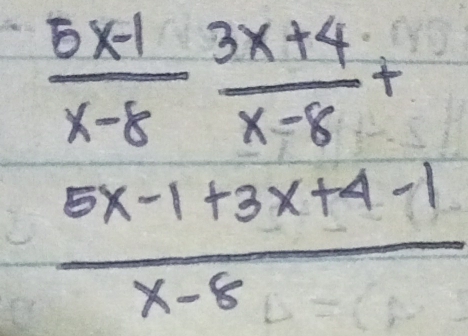 5x-1 3x+4
x-8 x-8 +
5x-1+3x+4-1
x-8